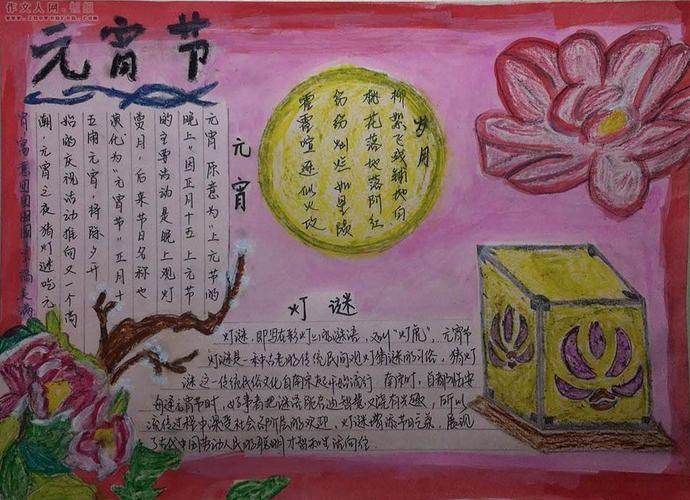 作文人网
元宵节
元宵
元宵 原意为"上元节的
晚上"因正月十五上元节
的主要活动是晚上观灯
赏月,后来节日名称也
演化为"元宵节"正月十
五闹元宵,将除夕开
始的庆祝活动推向又一个高
潮,元宵之夜猜灯谜吃元
宵寓意团团圆圆幸福美满
岁月
柳絮飞残铺地白
桃花落地落阶红
纷纷灿烂如星陨
霍霍喧逐似火攻
灯谜
灯谜,即写在彩灯上的谜语,又叫"灯虎"。元宵节
灯谜是一种古老的传统民间观灯猜谜的习俗,猜灯
谜这一传统民俗文化自南宋起开始流行 南宋时,首都临安
每逢元宵节时,好事者把谜语 智慧又饶有兴趣,所以
流传过程中深受社会各阶层的欢迎,灯谜增添节日之气,展现
了古代中国劳动人民的聪明才智和生活向往